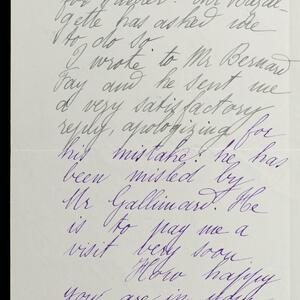 to do so.
I wrote to Mr Bernard
Fay and he sent me
a very satisfactory
reply, apologizing for
his mistake: he has
been misled by
Mr Gallimard. He
is to pay me a
visit very soon.
How happy
you are in your